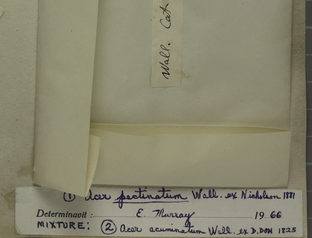 Wall. Cat
① Acer pectinatum Wall. ex Nicholson 1881
Determinavit: E. Murray 1966
MIXTURE: ② Acer acuminatum Wall. ex D. DON 1825